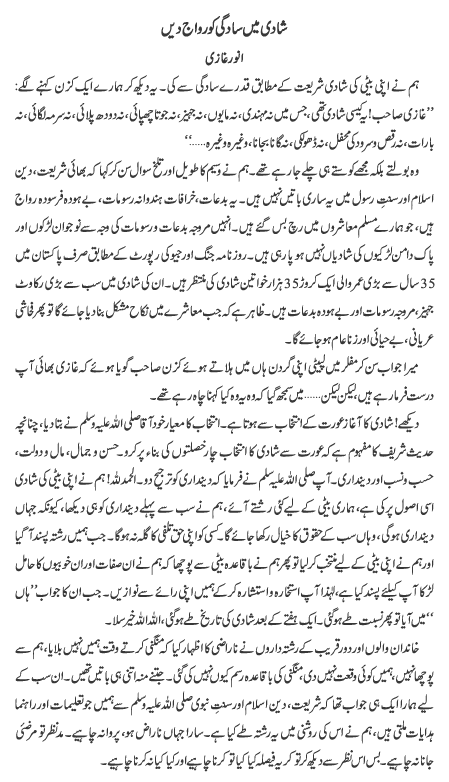 شادی میں سادگی کو رواج دیں
انور غازی
ہم نے اپنی بیٹی کی شادی شریعت کے مطابق قدرے سادگی سے کی۔ یہ دیکھ کر ہمارے ایک کزن کہنے لگے:
”غازی صاحب! یہ کیسی شادی تھی، جس میں نہ مہندی، نہ مایوں، نہ جہیز، نہ جوتا چھپائی، نہ دودھ پلائی، نہ سرمہ لگائی، نہ
بارات، نہ رقص وسرود کی محفل، نہ ڈھولکی، نہ گانا بجانا، وغیرہ وغیرہ......“
وہ بولتے بلکہ مجھے کوستے ہی چلے جا رہے تھے۔ ہم نے وسیم کا طویل اور تلخ سوال سن کر کہا کہ بھائی شریعت، دین
اسلام اور سنتِ رسول میں یہ ساری باتیں نہیں ہیں۔ یہ بدعات، خرافات ہندوانہ رسومات، بے ہودہ فرسودہ رواج
ہیں، جو ہمارے مسلم معاشروں میں رچ بس گئے ہیں۔ انہیں مروجہ بدعات ورسومات کی وجہ سے نوجوان لڑکوں اور
پاک دامن لڑکیوں کی شادیاں نہیں ہو پا رہی ہیں۔ روزنامہ جنگ اور جیو کی رپورٹ کے مطابق صرف پاکستان میں
35 سال سے بڑی عمر والی ایک کروڑ 35 ہزار خواتین شادی کی منتظر ہیں۔ ان کی شادی میں سب سے بڑی رکاوٹ
جہیز، مروجہ رسومات اور بے ہودہ بدعات ہیں۔ ظاہر ہے کہ جب معاشرے میں نکاح مشکل بنا دیا جائے گا تو پھر فحاشی
عریانی، بے حیائی اور زنا عام ہو جائے گا۔
میرا جواب سن کر مفلر میں لپیٹی اپنی گردن ہاں میں ہلاتے ہوئے کزن صاحب گویا ہوئے کہ غازی بھائی آپ
درست فرما رہے ہیں، لیکن لیکن...... میں سمجھ گیا کہ وہ یہ وہ کیا کہنا چاہ رہے تھے۔
دیکھیے! شادی کا آغاز عورت کے انتخاب سے ہوتا ہے۔ انتخاب کا معیار خود آقا صلی اللہ علیہ وسلم نے بتا دیا، چنانچہ
حدیث شریف کا مفہوم ہے کہ عورت سے شادی کا انتخاب چار خصلتوں کی بناء پر کرو۔ حسن و جمال، مال و دولت،
حسب و نسب اور دینداری۔ آپ صلی اللہ علیہ وسلم نے فرمایا کہ دینداری کو ترجیح دو۔ الحمد للہ! ہم نے اپنی بیٹی کی شادی
اسی اصول پر کی ہے، ہماری بیٹی کے لیے کئی رشتے آئے، ہم نے سب سے پہلے دینداری ہی کو دیکھا، کیونکہ جہاں
دینداری ہوگی، وہاں سب کے حقوق کا خیال رکھا جائے گا۔ کسی کو اپنی حق تلفی کا گلہ نہ ہوگا۔ جب ہمیں رشتہ پسند آ گیا
اور ہم نے اپنی بیٹی کے لیے منتخب کر لیا تو پھر ہم نے باقاعدہ بیٹی سے پوچھا کہ ہم نے ان صفات اور ان خوبیوں کا حامل
لڑکا آپ کیلئے پسند کیا ہے، لہٰذا آپ استخارہ و استشارہ کر کے ہمیں اپنی رائے سے نوازیں۔ جب ان کا جواب ”ہاں
“ میں آیا تو پھر نسبت طے ہو گئی۔ ایک ہفتے کے بعد شادی کی تاریخ طے ہو گئی، اللہ اللہ خیر سلا۔
خاندان والوں اور دور قریب کے رشتہ داروں نے ناراضی کا اظہار کیا کہ منگنی کرتے وقت ہمیں نہیں بلایا، ہم سے
پوچھا نہیں، ہمیں کوئی وقعت نہیں دی، منگنی کی باقاعدہ رسم کیوں نہیں کی گئی۔ جتنے منہ اتنی ہی باتیں تھیں۔ ان سب کے
لیے ہمارا ایک ہی جواب تھا کہ شریعت، دین اسلام اور سنتِ نبوی صلی اللہ علیہ وسلم سے ہمیں جو تعلیمات اور راہنما
ہدایات ملتی ہیں، ہم نے اس کی روشنی میں یہ رشتہ طے کیا ہے۔ سارا جہاں ناراض ہو، پروا نہ چاہیے۔ مد نظر تو مرضیٔ
جاناں چاہیے۔ بس اس نظر سے دیکھ کر تو کر یہ فیصلہ کیا کیا تو کرنا چاہیے اور کیا کیا نہ کرنا چاہیے۔